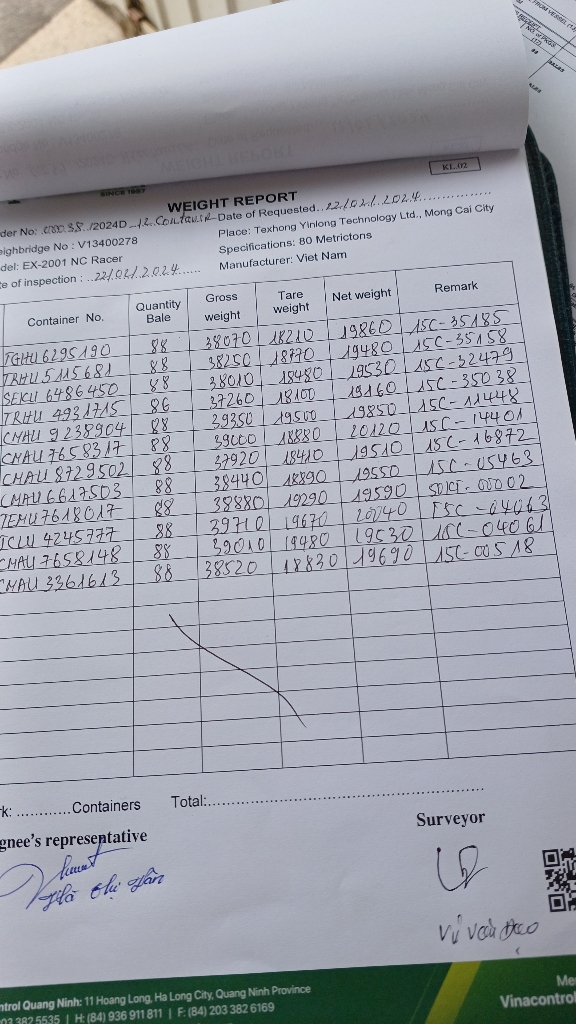 SINCE 1987
KL.02
WEIGHT REPORT
der No: 00038 /2024D - 12 Container Date of Requested.. 22/02/2024
eighbridge No : V13400278
Place: Texhong Yinlong Technology Ltd., Mong Cai City
del: EX-2001 NC Racer
Specifications: 80 Metrictons
te of inspection : 22/02/2024
Manufacturer: Viet Nam
Container No. Quantity Bale Gross weight Tare weight Net weight Remark
TGHU 6295190 88 38070 18210 19860 15C-35185
TRHU 5115681 88 38250 18770 19480 15C-35158
SEKU 6486450 88 38010 18480 19530 15C-32479
TRHU 4931715 86 37260 18100 19160 15C-35038
CMAU 9238904 88 39350 19500 19850 15C-11448
CMAU 7658317 88 39000 18880 20120 15C-14401
CMAU 8729502 88 37920 18410 19510 15C-16872
CMAU 6617503 88 38440 18890 19550 15C-05463
TEMU 7618017 88 38880 19290 19590 -00002
TCLU 4245777 88 39710 19670 20040 15C-04063
CMAU 7658148 88 39010 19480 19530 15C-04061
CMAU 3361613 88 38520 18830 19690 15C-00518
k: ............Containers Total:
gnee's representative
Surveyor
Hà Thị Vân
Vũ Văn Đạo
ntrol Quang Ninh: 11 Hoang Long, Ha Long City, Quang Ninh Province
03 382 5535 | H: (84) 936 911 811 | F: (84) 203 382 6169
Me
Vinacontrol